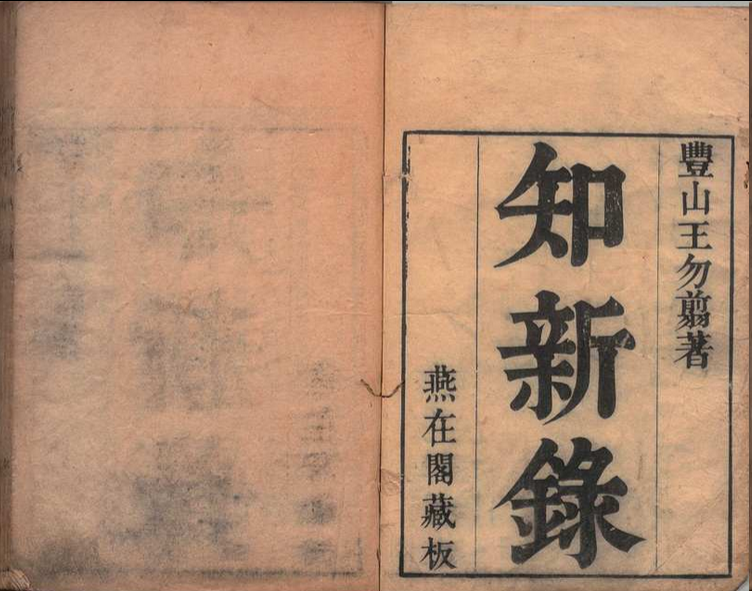 豐山王勿翦著
知新錄
燕在閣藏板